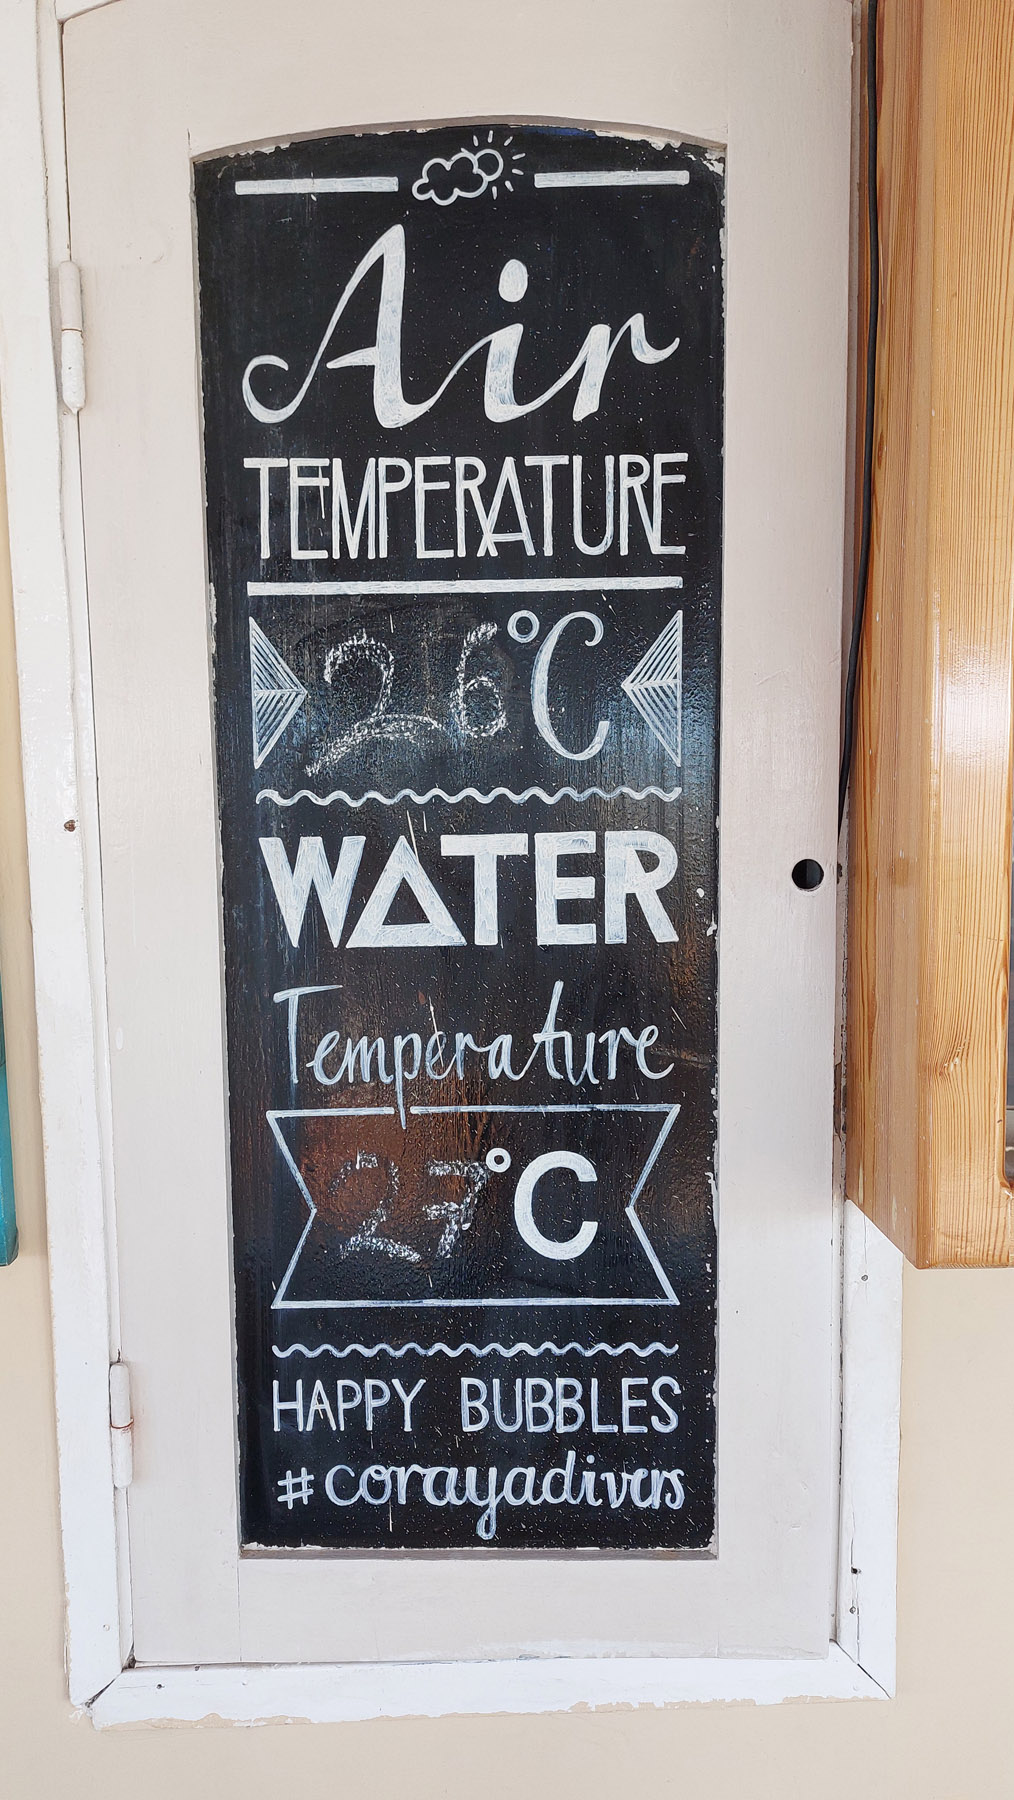 Air
TEMPERATURE
26°C
WATER
Temperature
27°C
HAPPY BUBBLES
#corayadivers